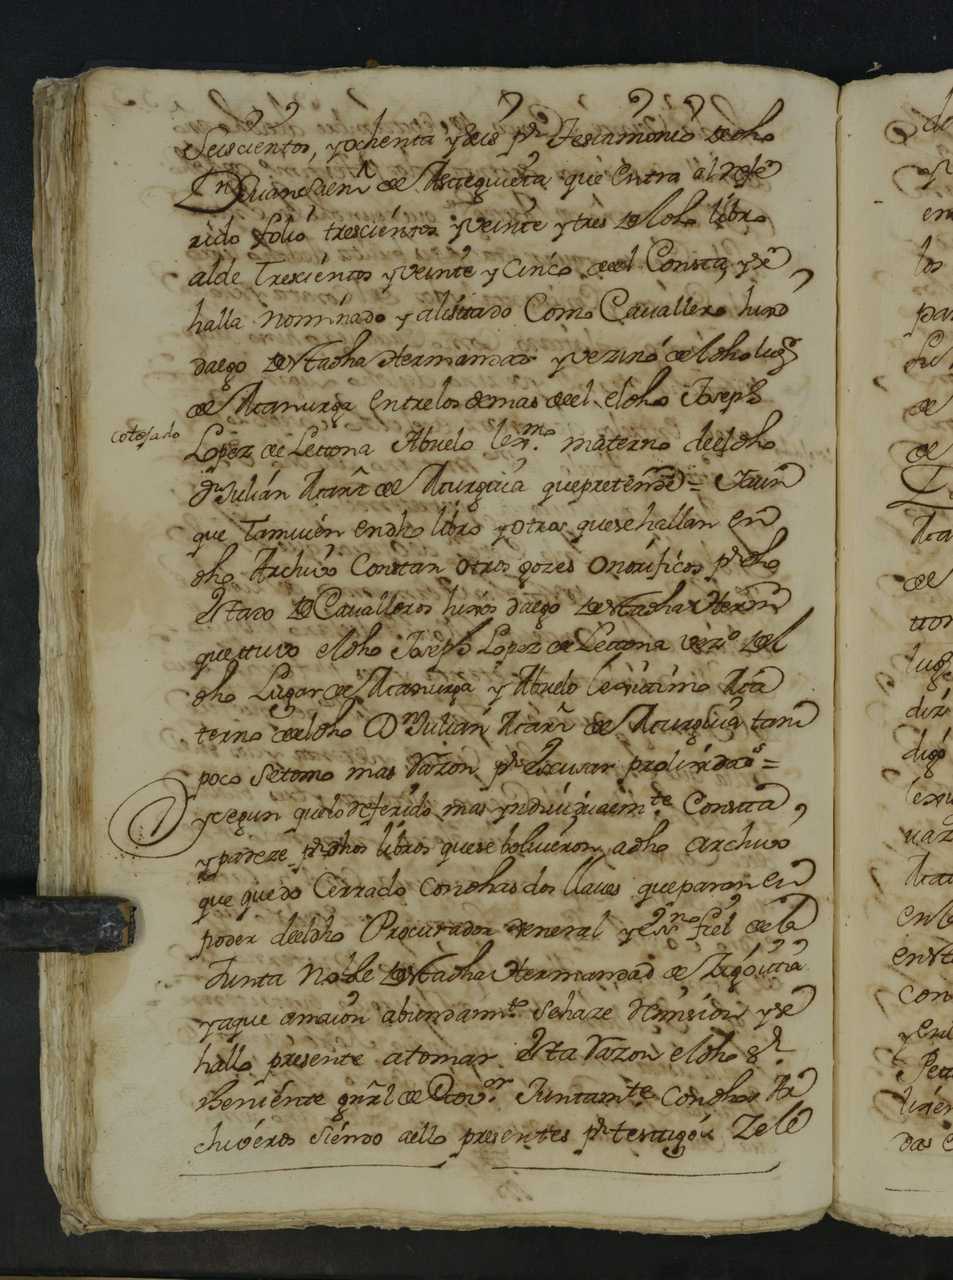 Seiscientos, y ochenta y seis pr Testamonio de dho
Dn Juan Saenz de Asteguieta que entra al Refe
rido folio trescientos y veinte y tres de dho libro
al de Trescientos y veinte y Cinco de el Consta, y se
halla nominado y alistado Como Cavallero hixo
dalgo de Vta dha Hermandad y vezino de dho lugr
de Atanurga entre los demas de el el dho Joseph
cotejado
Lopez de Letona Abuelo lexmo. materno de el dho
dn Julian Martrz de Murguia que pretende = Y aun
que Tamvien en dho libro y otros que se hallan en
dho Archivo Constan otros gozes onorificos pr dho
estado de Cavalleros hixos dalgo de Vta dha Hermd
que tuvo el dho Joseph Lopez de Letona vezo. del
dho Lugar de Atanurga y Abuelo lexitimo Ma
terno de el dho Dn Julian Martrz de Murguia tam
poco se tomo mas Razon pr escusar prolixidads =
y segun que lo Referido mas yndividualmte Consta,
y pareze pr dhos libros que se bolvieron a dho archivo
que quedo Cerrado Con dhas dos llaves que paran en
poder de el dho Procurador General y Essno fiel de la
Junta Noble de Vta dha Hermandad de Zigoitia
y a que a maior abundamto. se haze Remision y se
hallo presente a tomar esta Razon el dho Sr
Theniente gral de Dtor. Juntamte. Con dhos Ar
chiveros siendo a ello presentes pr testigos Zele